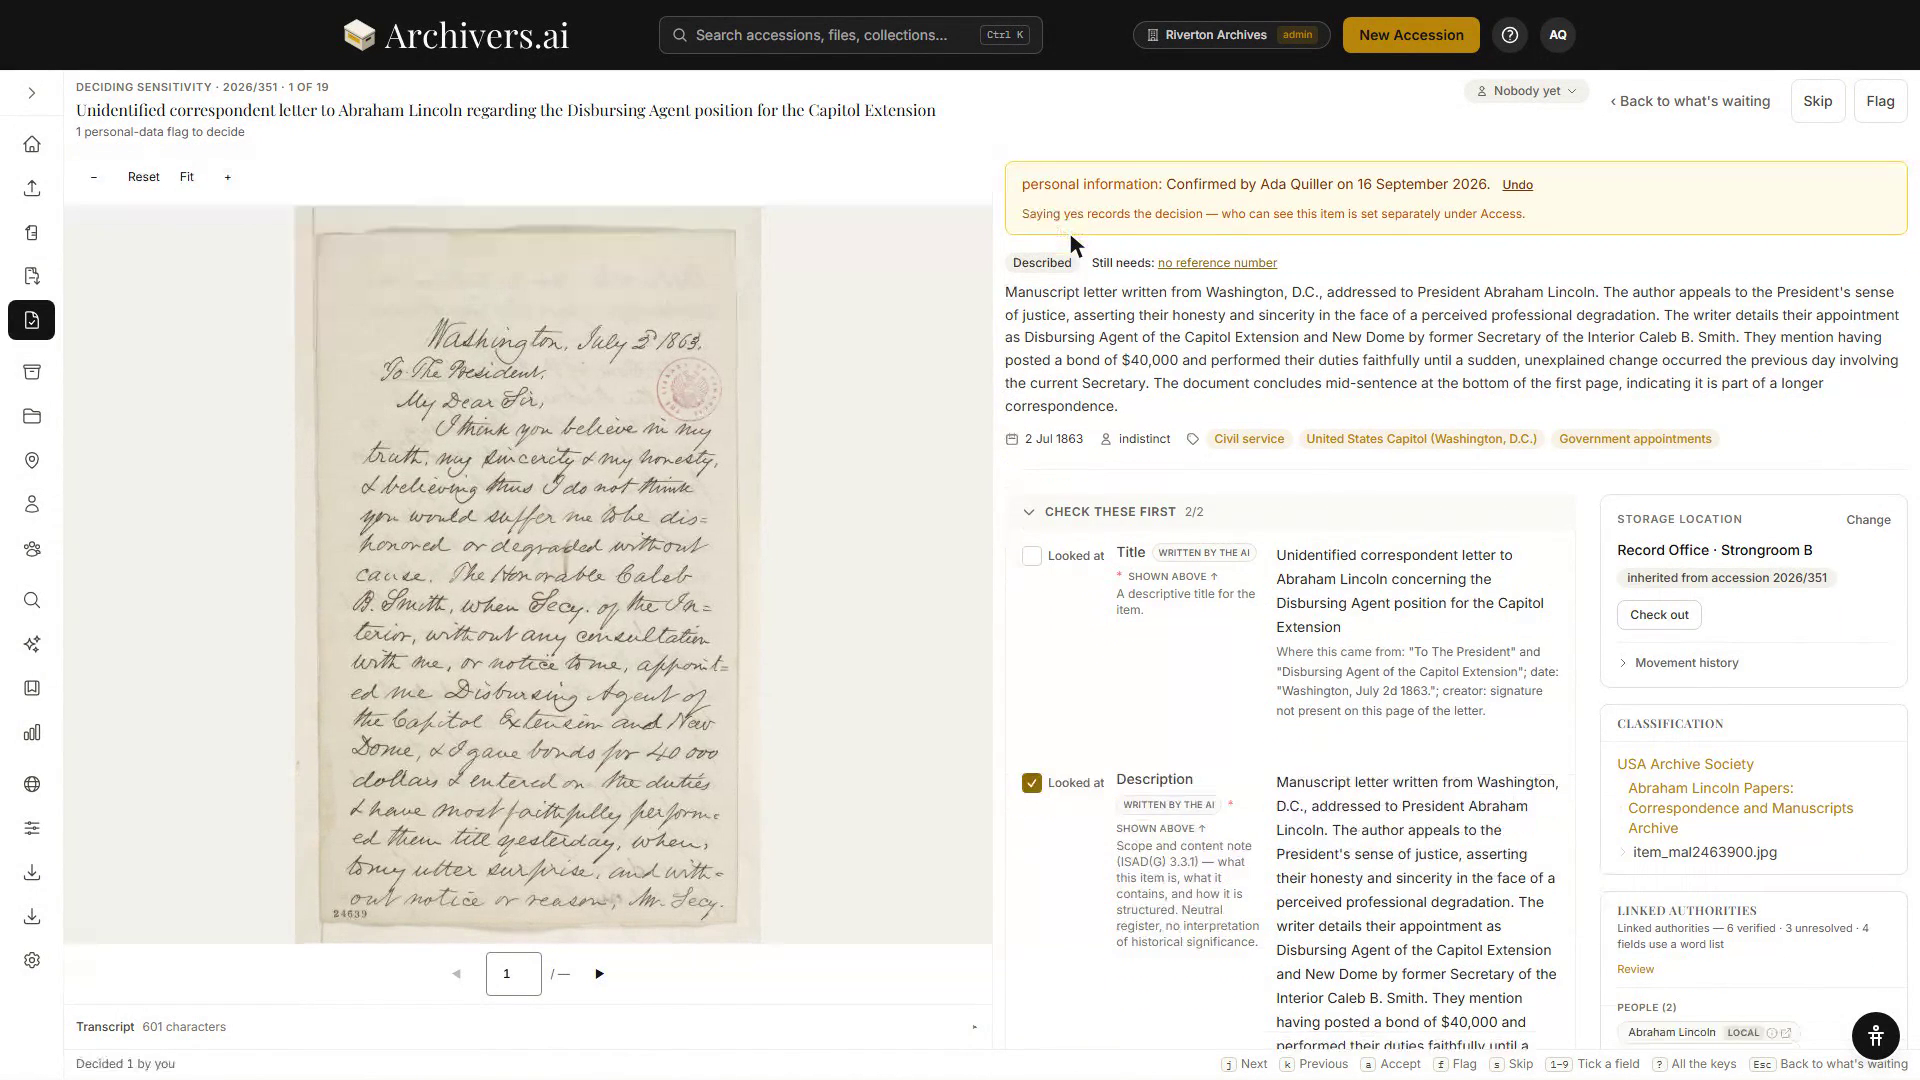 Archivers.ai
Search accessions, files, collections... Ctrl K
Riverton Archives admin
New Accession
AQ
DECIDING SENSITIVITY · 2026/351 · 1 OF 19
Unidentified correspondent letter to Abraham Lincoln regarding the Disbursing Agent position for the Capitol Extension
1 personal-data flag to decide
Nobody yet
‹ Back to what's waiting
Skip
Flag
− Reset Fit +
Washington, July 2d 1863.
To The President,
My Dear Sir,
I think you believe in my
truth, my sincerity & my honesty,
& believing thus I do not think
you would suffer me to be dis=
honored or degraded without
cause. The Honorable Caleb
B. Smith, when Secy. of the In=
terior, without any consultation
with me, or notice to me, appoint=
ed me Disbursing Agent of
the Capitol Extension and New
Dome, & I gave bonds for 40 000
dollars & entered on the duties
& have most faithfully perform=
ed them till yesterday, when,
to my utter surprise, and with=
out notice or reason, Mr. Secy.
24639
1 / —
Transcript 601 characters
Decided 1 by you
personal information: Confirmed by Ada Quiller on 16 September 2026. Undo
Saying yes records the decision — who can see this item is set separately under Access.
Described Still needs: no reference number
Manuscript letter written from Washington, D.C., addressed to President Abraham Lincoln. The author appeals to the President's sense
of justice, asserting their honesty and sincerity in the face of a perceived professional degradation. The writer details their appointment
as Disbursing Agent of the Capitol Extension and New Dome by former Secretary of the Interior Caleb B. Smith. They mention having
posted a bond of $40,000 and performed their duties faithfully until a sudden, unexplained change occurred the previous day involving
the current Secretary. The document concludes mid-sentence at the bottom of the first page, indicating it is part of a longer
correspondence.
2 Jul 1863 indistinct Civil service United States Capitol (Washington, D.C.) Government appointments
CHECK THESE FIRST 2/2
Looked at
Title WRITTEN BY THE AI
* SHOWN ABOVE ↑
A descriptive title for the
item.
Unidentified correspondent letter to
Abraham Lincoln concerning the
Disbursing Agent position for the Capitol
Extension
Where this came from: "To The President" and
"Disbursing Agent of the Capitol Extension"; date:
"Washington, July 2d 1863."; creator: signature
not present on this page of the letter.
Looked at
Description
WRITTEN BY THE AI *
SHOWN ABOVE ↑
Scope and content note
(ISAD(G) 3.3.1) — what
this item is, what it
contains, and how it is
structured. Neutral
register, no interpretation
of historical significance.
Manuscript letter written from Washington,
D.C., addressed to President Abraham
Lincoln. The author appeals to the
President's sense of justice, asserting
their honesty and sincerity in the face of a
perceived professional degradation. The
writer details their appointment as
Disbursing Agent of the Capitol Extension
and New Dome by former Secretary of the
Interior Caleb B. Smith. They mention
having posted a bond of $40,000 and
performed their duties faithfully until a
STORAGE LOCATION Change
Record Office · Strongroom B
inherited from accession 2026/351
Check out
Movement history
CLASSIFICATION
USA Archive Society
Abraham Lincoln Papers:
Correspondence and Manuscripts
Archive
item_mal2463900.jpg
LINKED AUTHORITIES
Linked authorities — 6 verified · 3 unresolved · 4
fields use a word list
Review
PEOPLE (2)
Abraham Lincoln LOCAL
j Next k Previous a Accept f Flag s Skip 1–9 Tick a field ? All the keys Esc Back to what's waiting